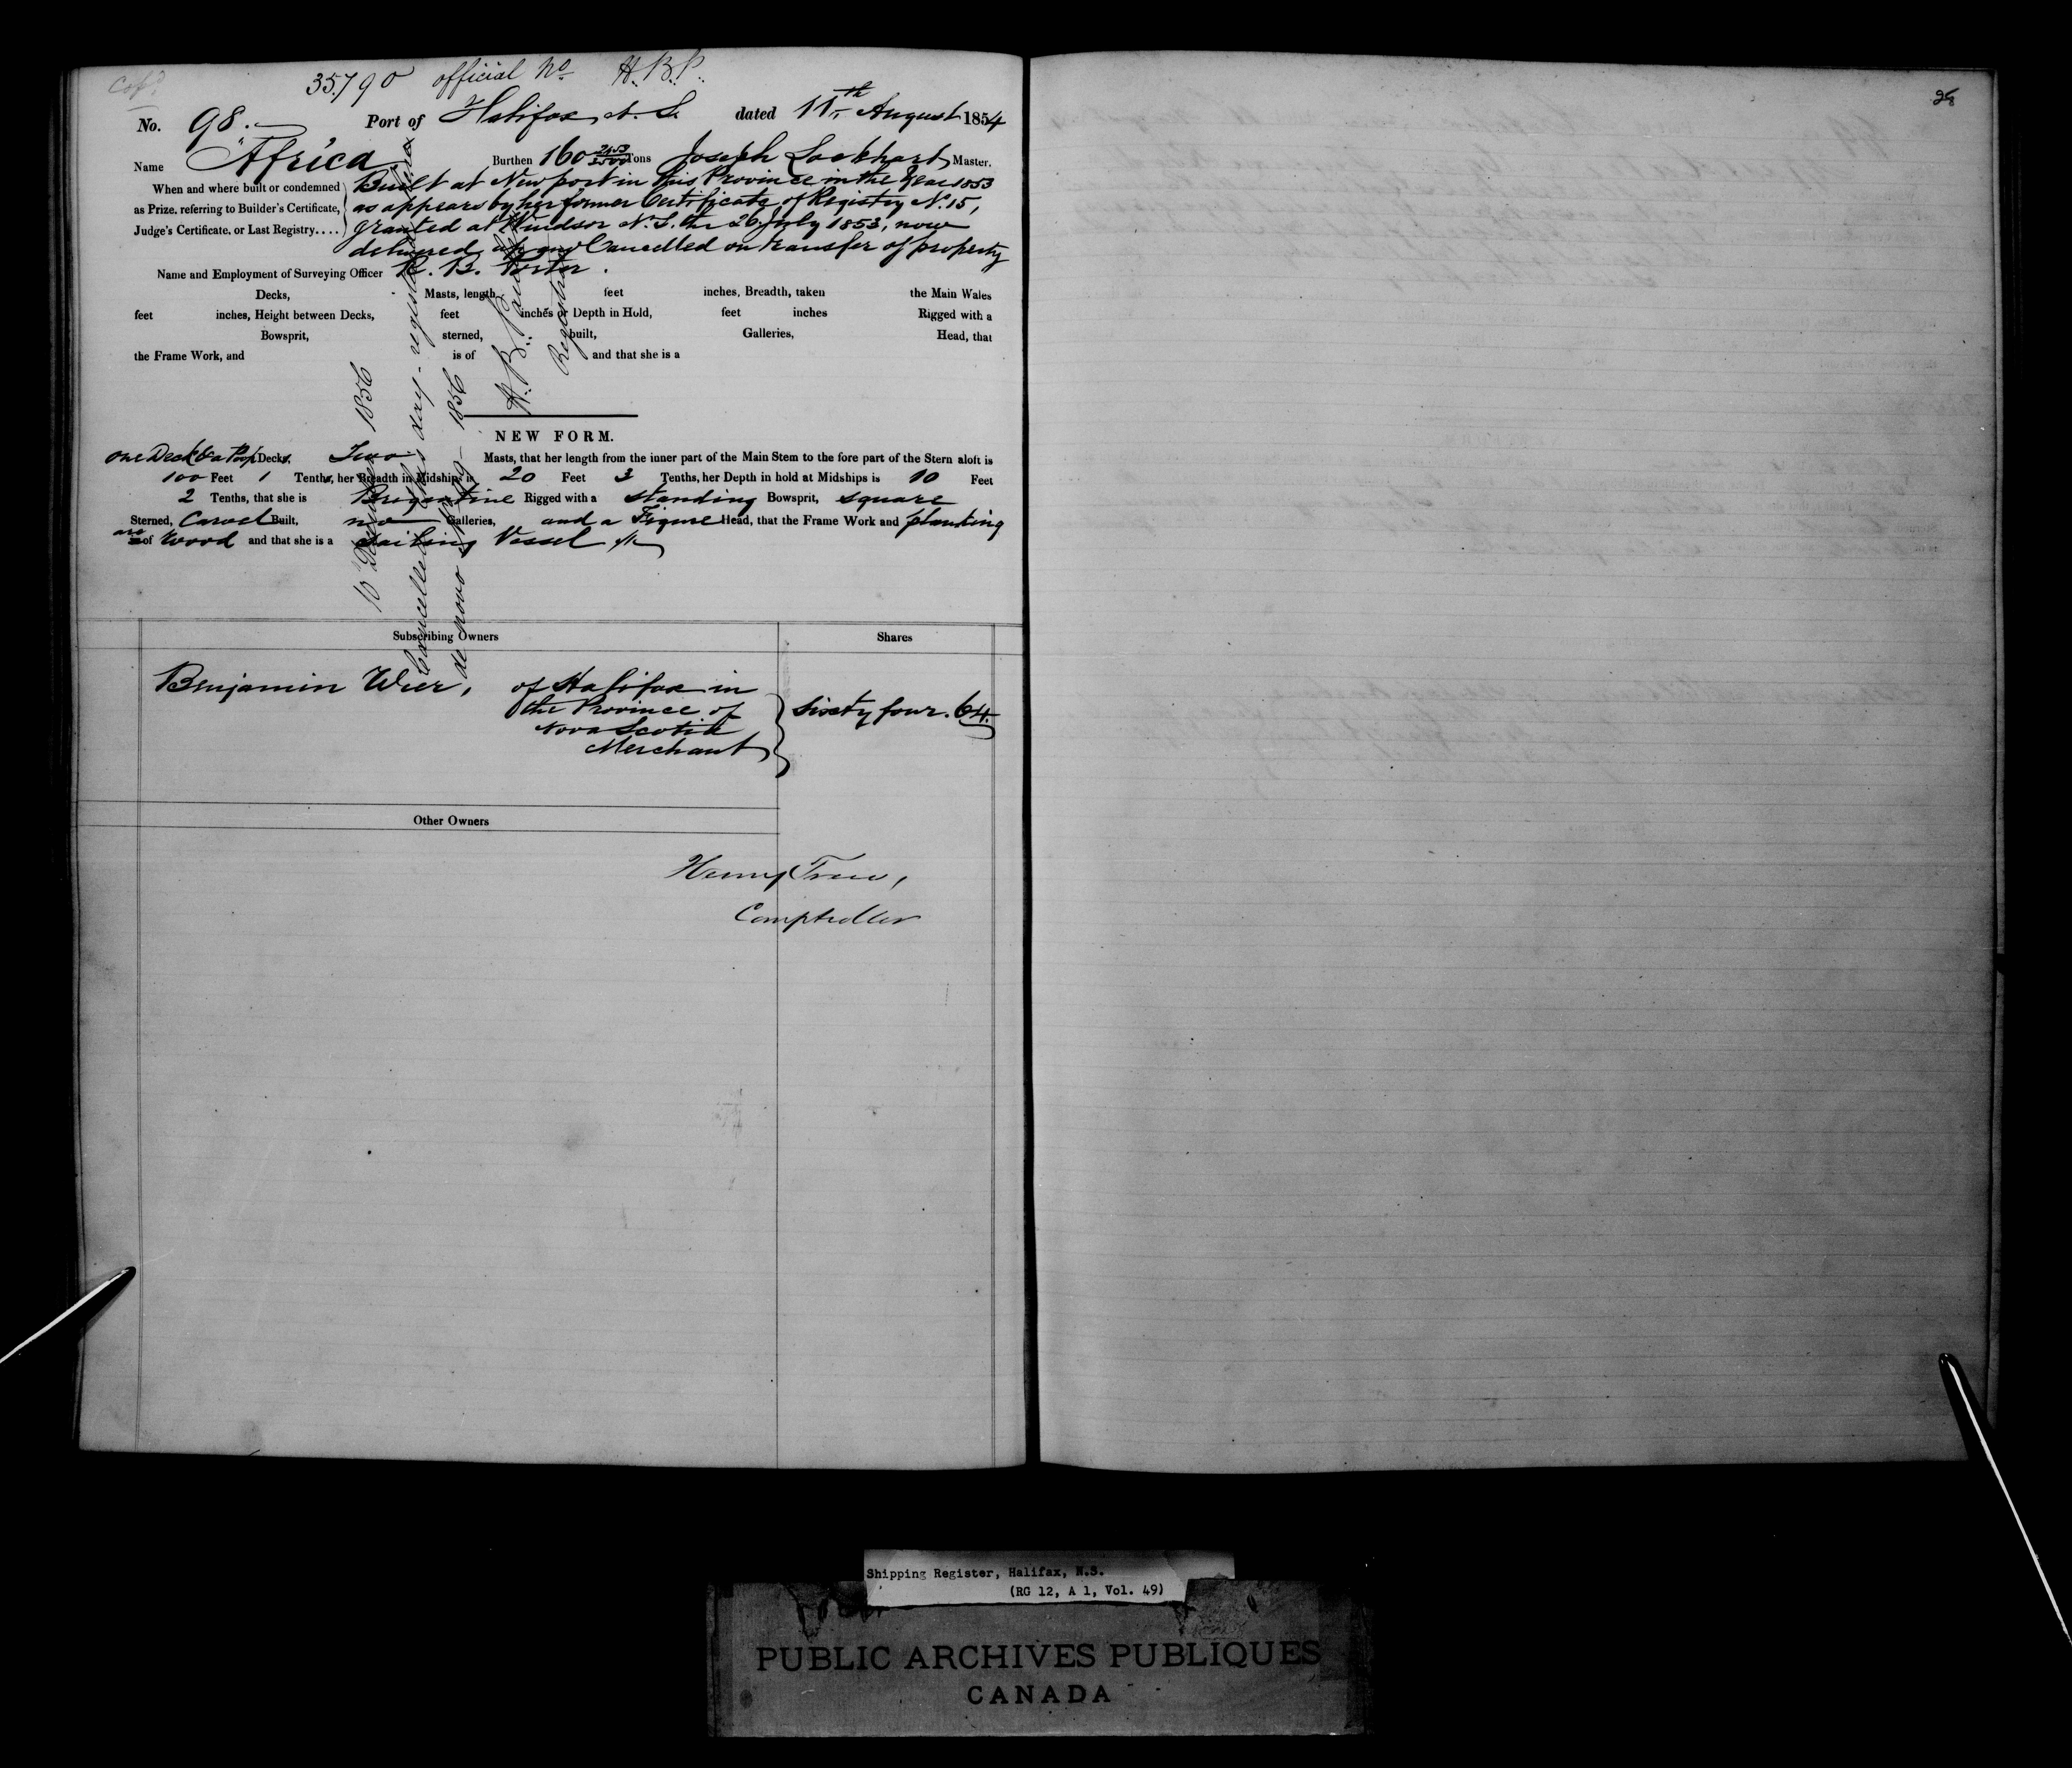 Cop^d
35790 official No H.B.P.
No. 98. Port of Halifax N.S. dated 11th August 1854
Name "Africa" Burthen 160 2453/3500 Tons Joseph Lockhart Master.
When and where built or condemned as Prize, referring to Builder's Certificate, Judge's Certificate, or Last Registry....
Built at Newport in this Province in the Year 1853
as appears by her former Certificate of Registry No. 15,
granted at Windsor N.S. the 26 July 1853, now
delivered up and Cancelled on transfer of property
Name and Employment of Surveying Officer R. B. Porter.
Decks, Masts, length feet inches, Breadth, taken the Main Wales
feet inches, Height between Decks, feet inches or Depth in Hold, feet inches Rigged with a
Bowsprit, sterned, built, Galleries, Head, that
the Frame Work, and is of and that she is a
NEW FORM.
one Deck & a Poop Decks, Two Masts, that her length from the inner part of the Main Stem to the fore part of the Stern aloft is
100 Feet 1 Tenths, her Breadth in Midships is 20 Feet 3 Tenths, her Depth in hold at Midships is 10 Feet
2 Tenths, that she is Brigantine Rigged with a standing Bowsprit, square
Sterned, Carvel Built, no Galleries, and a Figure Head, that the Frame Work and planking
are of Wood and that she is a Sailing Vessel
10 December 1856
Cancelled this day - registered
de novo No 99 - 1856
H.B.
Registrar
Subscribing Owners Shares
Benjamin Wier, of Halifax in
the Province of
Nova Scotia
Merchant
Sixty four. 64.
Other Owners
Henry Trew,
Comptroller
Shipping Register, Halifax, N.S.
(RG 12, A 1, Vol. 49)
PUBLIC ARCHIVES PUBLIQUES
CANADA